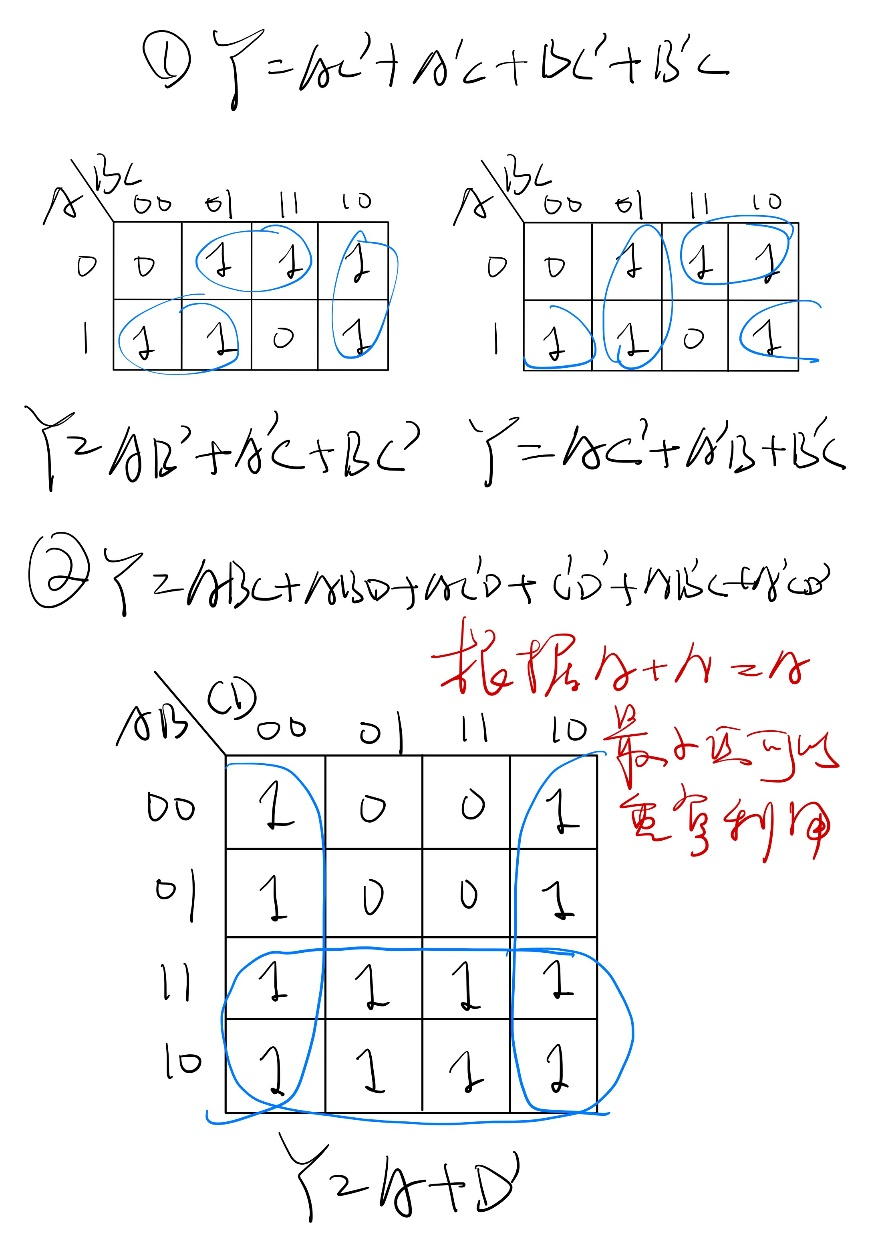 ① Y=AC'+A'C+BC'+B'C
A BC 00 01 11 10
0 0 1 1 1
1 1 1 0 1
A BC 00 01 11 10
0 0 1 1 1
1 1 1 0 1
Y=AB'+A'C+BC'
Y=AC'+A'B+B'C
② Y=ABC+ABD+AC'D+C'D'+AB'C+A'CD'
根据A+A=A
最小项可以
重复利用
AB CD 00 01 11 10
00 1 0 0 1
01 1 0 0 1
11 1 1 1 1
10 1 1 1 1
Y=A+D'